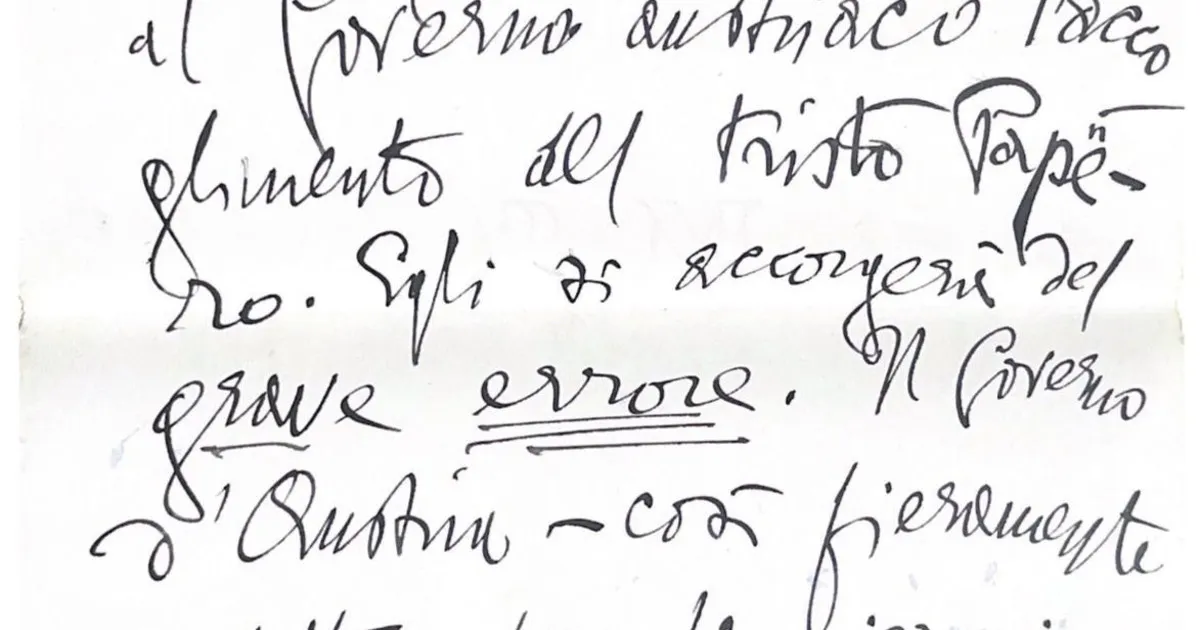 al Governo austriaco l'acco
glimento del tristo Papë-
ro. Egli si accorgerà del
grave errore. Il Governo
d'Austria - così fieramente